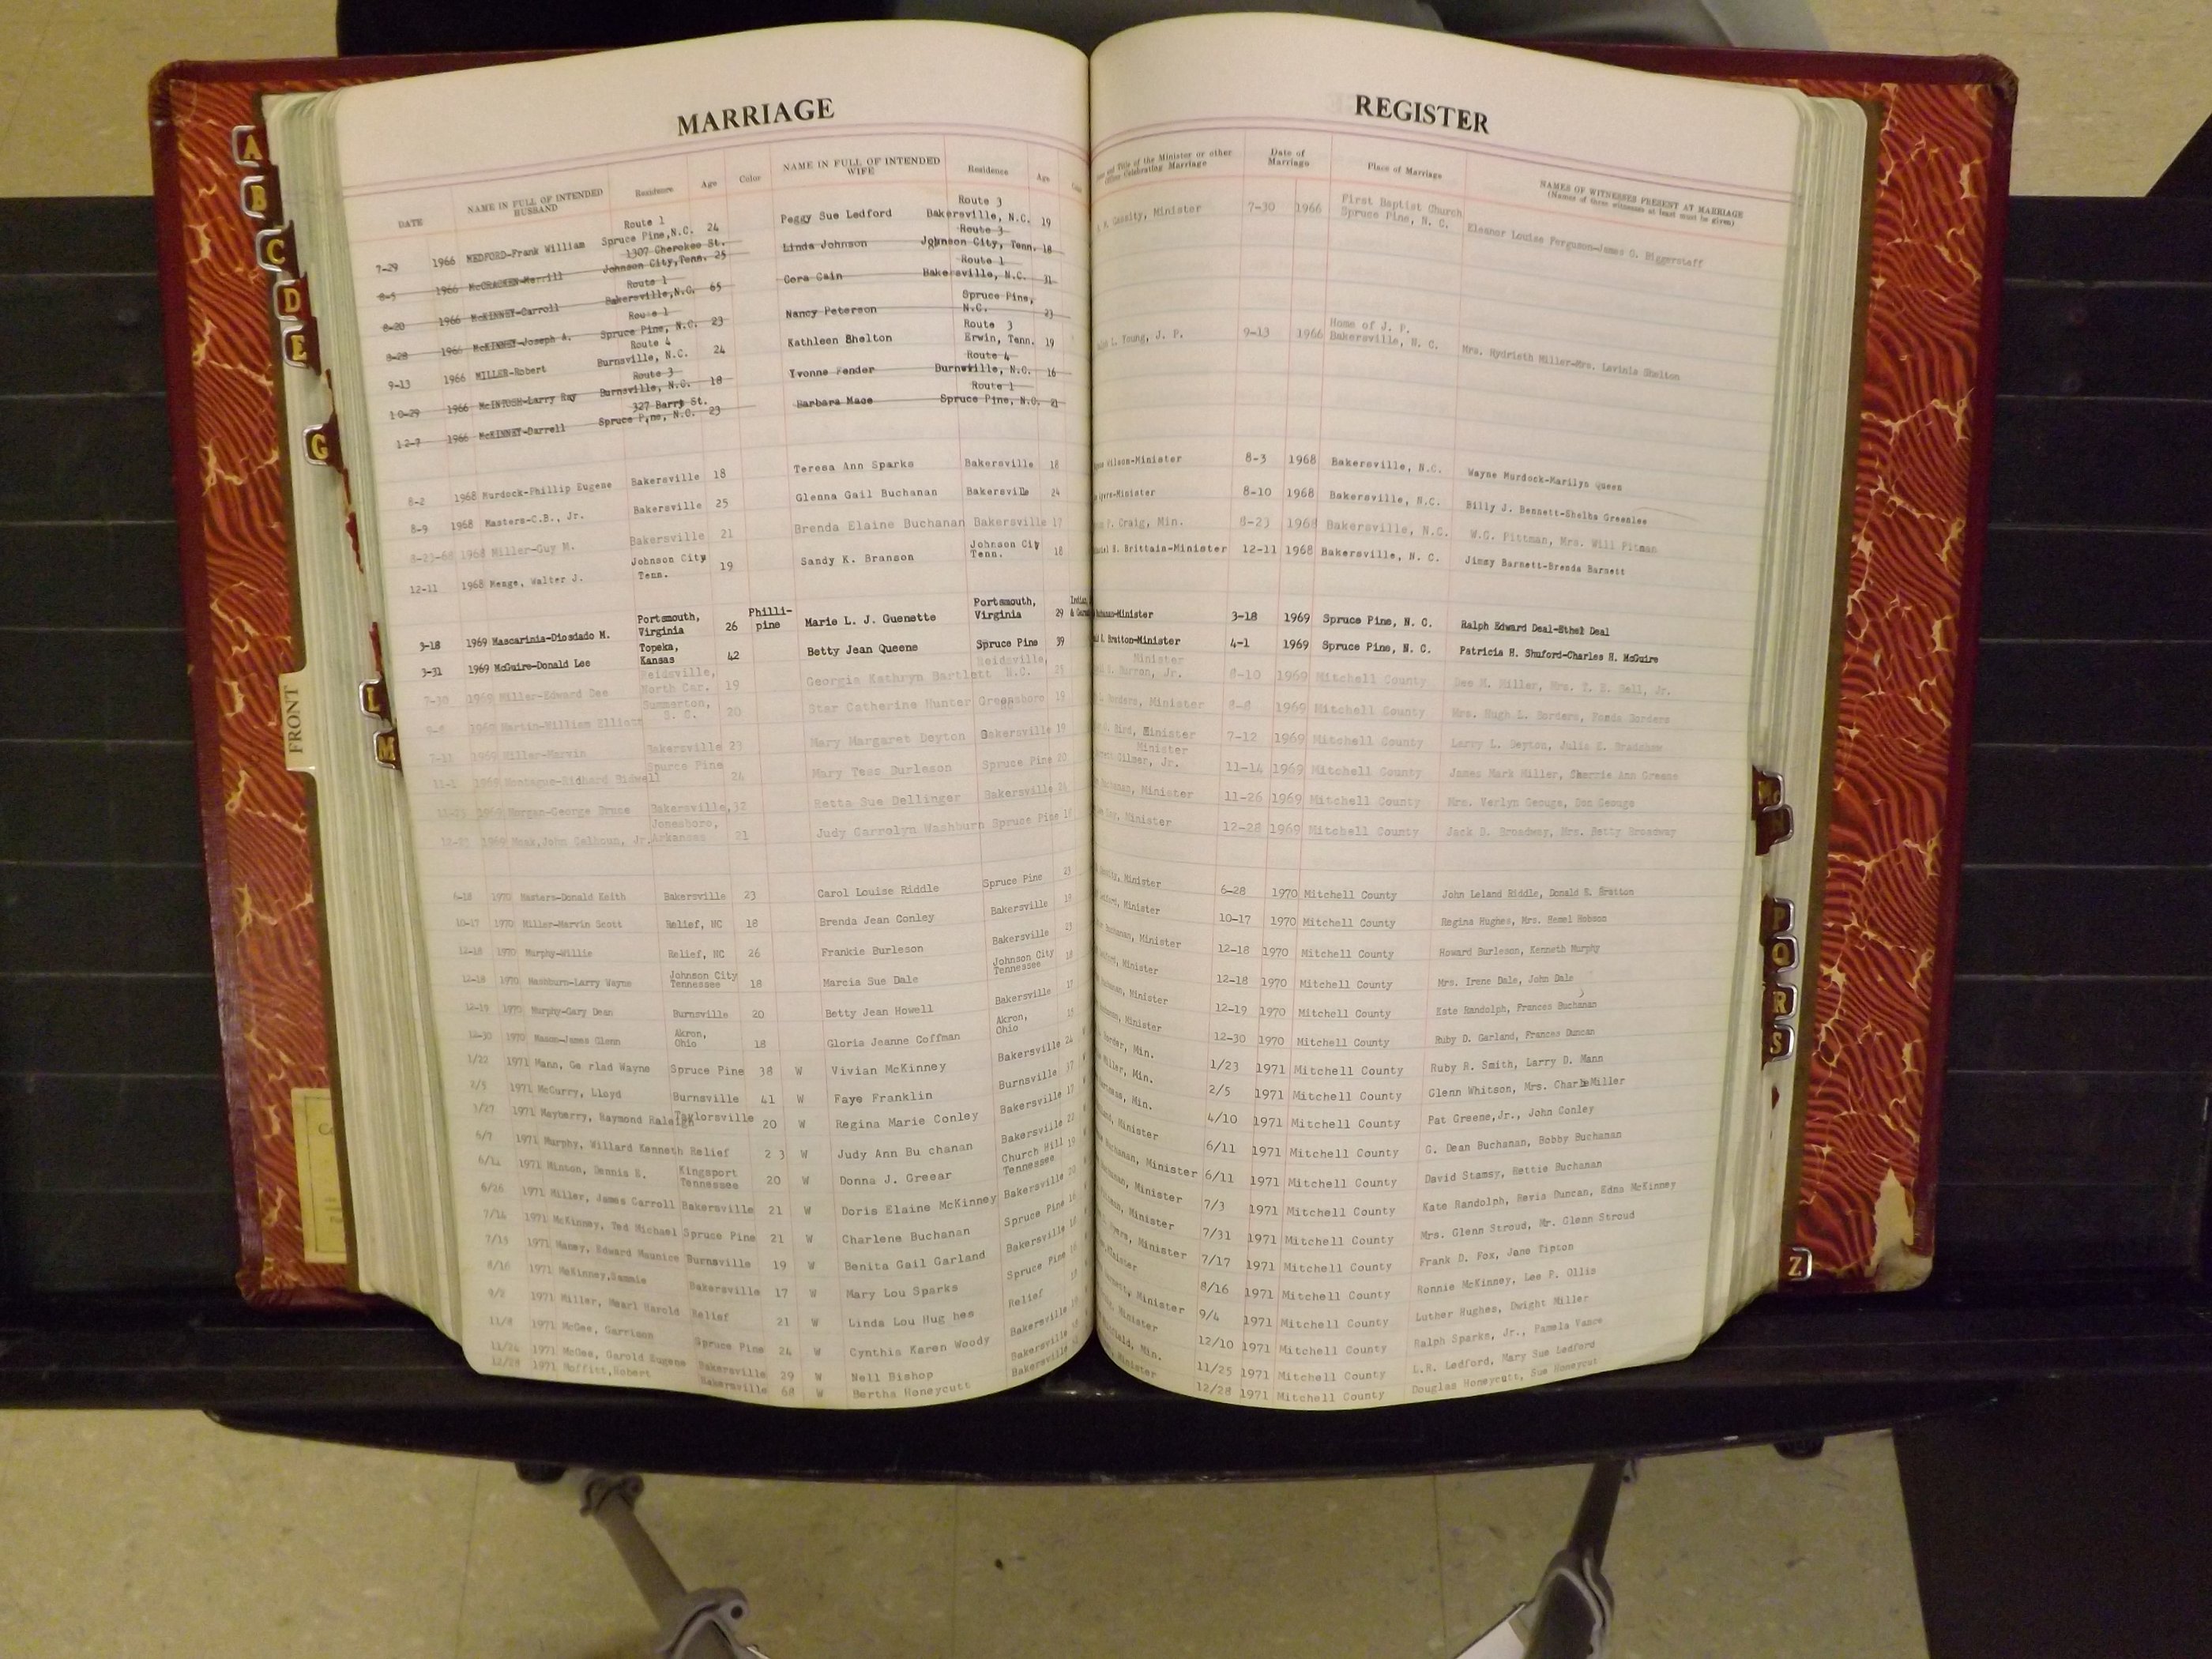 MARRIAGE
REGISTER
DATE NAME IN FULL OF INTENDED HUSBAND Residence Age Color NAME IN FULL OF INTENDED WIFE Residence Age
Title of the Minister or other Officer Celebrating Marriage Date of Marriage Place of Marriage NAMES OF WITNESSES PRESENT AT MARRIAGE
(Names of three witnesses at least must be given)
7-29 1966 MEDFORD-Frank William Route 1 Spruce Pine,N.C. 24 Peggy Sue Ledford Route 3 Bakersville, N.C. 19 Cassity, Minister 7-30 1966 First Baptist Church Spruce Pine, N. C. Eleanor Louise Ferguson-James G. Biggerstaff
8-5 1966 McCRACKEN-Merrill 1307 Cherokee St. Johnson City,Tenn. 25 Linda Johnson Route 3 Johnson City, Tenn. 18
8-20 1966 McKINNEY-Carroll Route 1 Bakersville,N.C. 65 Cora Cain Route 1 Bakersville, N.C. 31
8-28 1966 McKINNEY-Joseph A. Route 1 Spruce Pine, N.C. 23 Nancy Peterson Spruce Pine, N.C. 23
9-13 1966 MILLER-Robert Route 4 Burnsville, N.C. 24 Kathleen Shelton Route 3 Erwin, Tenn. 19 L. Young, J. P. 9-13 1966 Home of J. P. Bakersville, N. C. Mrs. Hydrieth Miller-Mrs. Lavinia Shelton
10-29 1966 McINTOSH-Larry Ray Route 3 Burnsville, N.C. 18 Yvonne Fender Route 4 Burnsville, N.C. 16
12-7 1966 McKINNEY-Darrell 327 Barry St. Spruce Pine, N.C. 23 Barbara Mace Route 1 Spruce Pine, N.C. 21
8-2 1968 Murdock-Phillip Eugene Bakersville 18 Teresa Ann Sparks Bakersville 18 Wilson-Minister 8-3 1968 Bakersville, N.C. Wayne Murdock-Marilyn Queen
8-9 1968 Masters-C.B., Jr. Bakersville 25 Glenna Gail Buchanan Bakersville 24 8-10 1968 Bakersville, N.C. Billy J. Bennett-Shelba Greenlee
8-23-68 1968 Miller-Guy M. Bakersville 21 Brenda Elaine Buchanan Bakersville 17 F. Craig, Min. 8-23 1968 Bakersville, N.C. W.G. Pittman, Mrs. Will Pitman
12-11 1968 Menge, Walter J. Johnson City Tenn. 19 Sandy K. Branson Johnson City Tenn. 18 H. Brittain-Minister 12-11 1968 Bakersville, N. C. Jimmy Barnett-Brenda Barnett
3-18 1969 Mascarinia-Diosdado M. Portsmouth, Virginia 26 Philli-pine Marie L. J. Guenette Portsmouth, Virginia 29 3-18 1969 Spruce Pine, N. C. Ralph Edward Deal-Ethel Deal
3-31 1969 McGuire-Donald Lee Topeka, Kansas 42 Betty Jean Queene Spruce Pine 39 Bratton-Minister 4-1 1969 Spruce Pine, N. C. Patricia H. Shuford-Charles H. McGuire
7-30 1969 Miller-Edward Dee Reidsville, North Car. 19 Georgia Kathryn Bartlett Reidsville, N.C. Burron, Jr. Minister 8-10 1969 Mitchell County Dee M. Miller, Mrs. T. E. Bell, Jr.
1969 Martin-William Elliott Summerton, S. C. 20 Star Catherine Hunter Greensboro 19 Borders, Minister 8-8 1969 Mitchell County Mrs. Hugh L. Borders, Fonda Borders
7-11 1969 Miller-Marvin Bakersville 23 Mary Margaret Deyton Bakersville 19 Bird, Minister 7-12 1969 Mitchell County Larry L. Deyton, Julia E. Bradshaw
11-1 1969 Montague-Ridhard Bidwell Spurce Pine 24 Mary Tess Burleson Spruce Pine 20 Gilmer, Jr. Minister 11-14 1969 Mitchell County James Mark Miller, Sherrie Ann Greene
1969 Morgan-George Bruce Bakersville, 32 Retta Sue Dellinger Bakersville Buchanan, Minister 11-26 1969 Mitchell County Mrs. Verlyn Geouge, Don Geouge
1969 Meek,John Calhoun, Jr. Jonesboro, Arkansas 21 Judy Carrolyn Washburn Spruce Pine Minister 12-28 1969 Mitchell County Jack B. Broadway, Mrs. Betty Broadway
6-18 1970 Masters-Donald Keith Bakersville 23 Carol Louise Riddle Spruce Pine 23 Minister 6-28 1970 Mitchell County John Leland Riddle, Donald E. Bratton
10-17 1970 Miller-Marvin Scott Relief, NC 18 Brenda Jean Conley Bakersville Minister 10-17 1970 Mitchell County Regina Hughes, Mrs. Hemel Hobson
12-18 1970 Murphy-Willie Relief, NC 26 Frankie Burleson Bakersville 23 Buchanan, Minister 12-18 1970 Mitchell County Howard Burleson, Kenneth Murphy
12-18 1970 Mashburn-Larry Wayne Johnson City Tennessee 18 Marcia Sue Dale Johnson City Tennessee Minister 12-18 1970 Mitchell County Mrs. Irene Dale, John Dale
12-19 1970 Murphy-Gary Dean Burnsville 20 Betty Jean Howell Bakersville 17 Minister 12-19 1970 Mitchell County Kate Randolph, Frances Buchanan
12-30 1970 Mason-James Glenn Akron, Ohio 18 Gloria Jeanne Coffman Akron, Ohio Minister 12-30 1970 Mitchell County Ruby D. Garland, Frances Duncan
1/22 1971 Mann, Ga rlad Wayne Spruce Pine 38 W Vivian McKinney Bakersville 24 Min. 1/23 1971 Mitchell County Ruby R. Smith, Larry D. Mann
2/5 1971 McCurry, Lloyd Burnsville 41 W Faye Franklin Burnsville 37 Miller, Min. 2/5 1971 Mitchell County Glenn Whitson, Mrs. Charle Miller
3/27 1971 Mayberry, Raymond Raleigh Taylorsville 20 W Regina Marie Conley Bakersville Min. 4/10 1971 Mitchell County Pat Greene,Jr., John Conley
6/7 1971 Murphy, Willard Kenneth Relief 2 3 W Judy Ann Bu chanan Bakersville 22 Minister 6/11 1971 Mitchell County G. Dean Buchanan, Bobby Buchanan
1971 Minton, Dennis E. Kingsport Tennessee 20 W Donna J. Greear Church Hill Tennessee 19 Buchanan, Minister 6/11 1971 Mitchell County David Stamsy, Rettie Buchanan
6/26 1971 Miller, James Carroll Bakersville 21 W Doris Elaine McKinney Bakersville 20 Minister 7/3 1971 Mitchell County Kate Randolph, Revis Duncan, Edna McKinney
7/14 1971 McKinney, Ted Michael Spruce Pine 21 W Charlene Buchanan Spruce Pine 16 Minister 7/31 1971 Mitchell County Mrs. Glenn Stroud, Mr. Glenn Stroud
7/15 1971 Maney, Edward Maunice Burnsville 19 W Benita Gail Garland Bakersville Minister 7/17 1971 Mitchell County Frank D. Fox, Jane Tipton
8/16 1971 McKinney,Sammie Bakersville 17 W Mary Lou Sparks Spruce Pine 16 Minister 8/16 1971 Mitchell County Ronnie McKinney, Lee P. Ollis
9/2 1971 Miller, Mearl Harold Relief 21 W Linda Lou Hug hes Relief Minister 9/4 1971 Mitchell County Luther Hughes, Dwight Miller
11/8 1971 McGee, Garrison Spruce Pine 24 W Cynthia Karen Woody Bakersville Minister 12/10 1971 Mitchell County Ralph Sparks, Jr., Pamela Vance
11/24 1971 McGee, Garold Eugene Bakersville 29 W Nell Bishop Bakersville Min. 11/25 1971 Mitchell County L.R. Ledford, Mary Sue Ledford
12/28 1971 Moffitt,Robert Bakersville 68 W Bertha Honeycutt Bakersville Minister 12/28 1971 Mitchell County Douglas Honeycutt, Sue Honeycut
A
B
C
D
E
G
FRONT
L
M
P
Q
R
S
Z